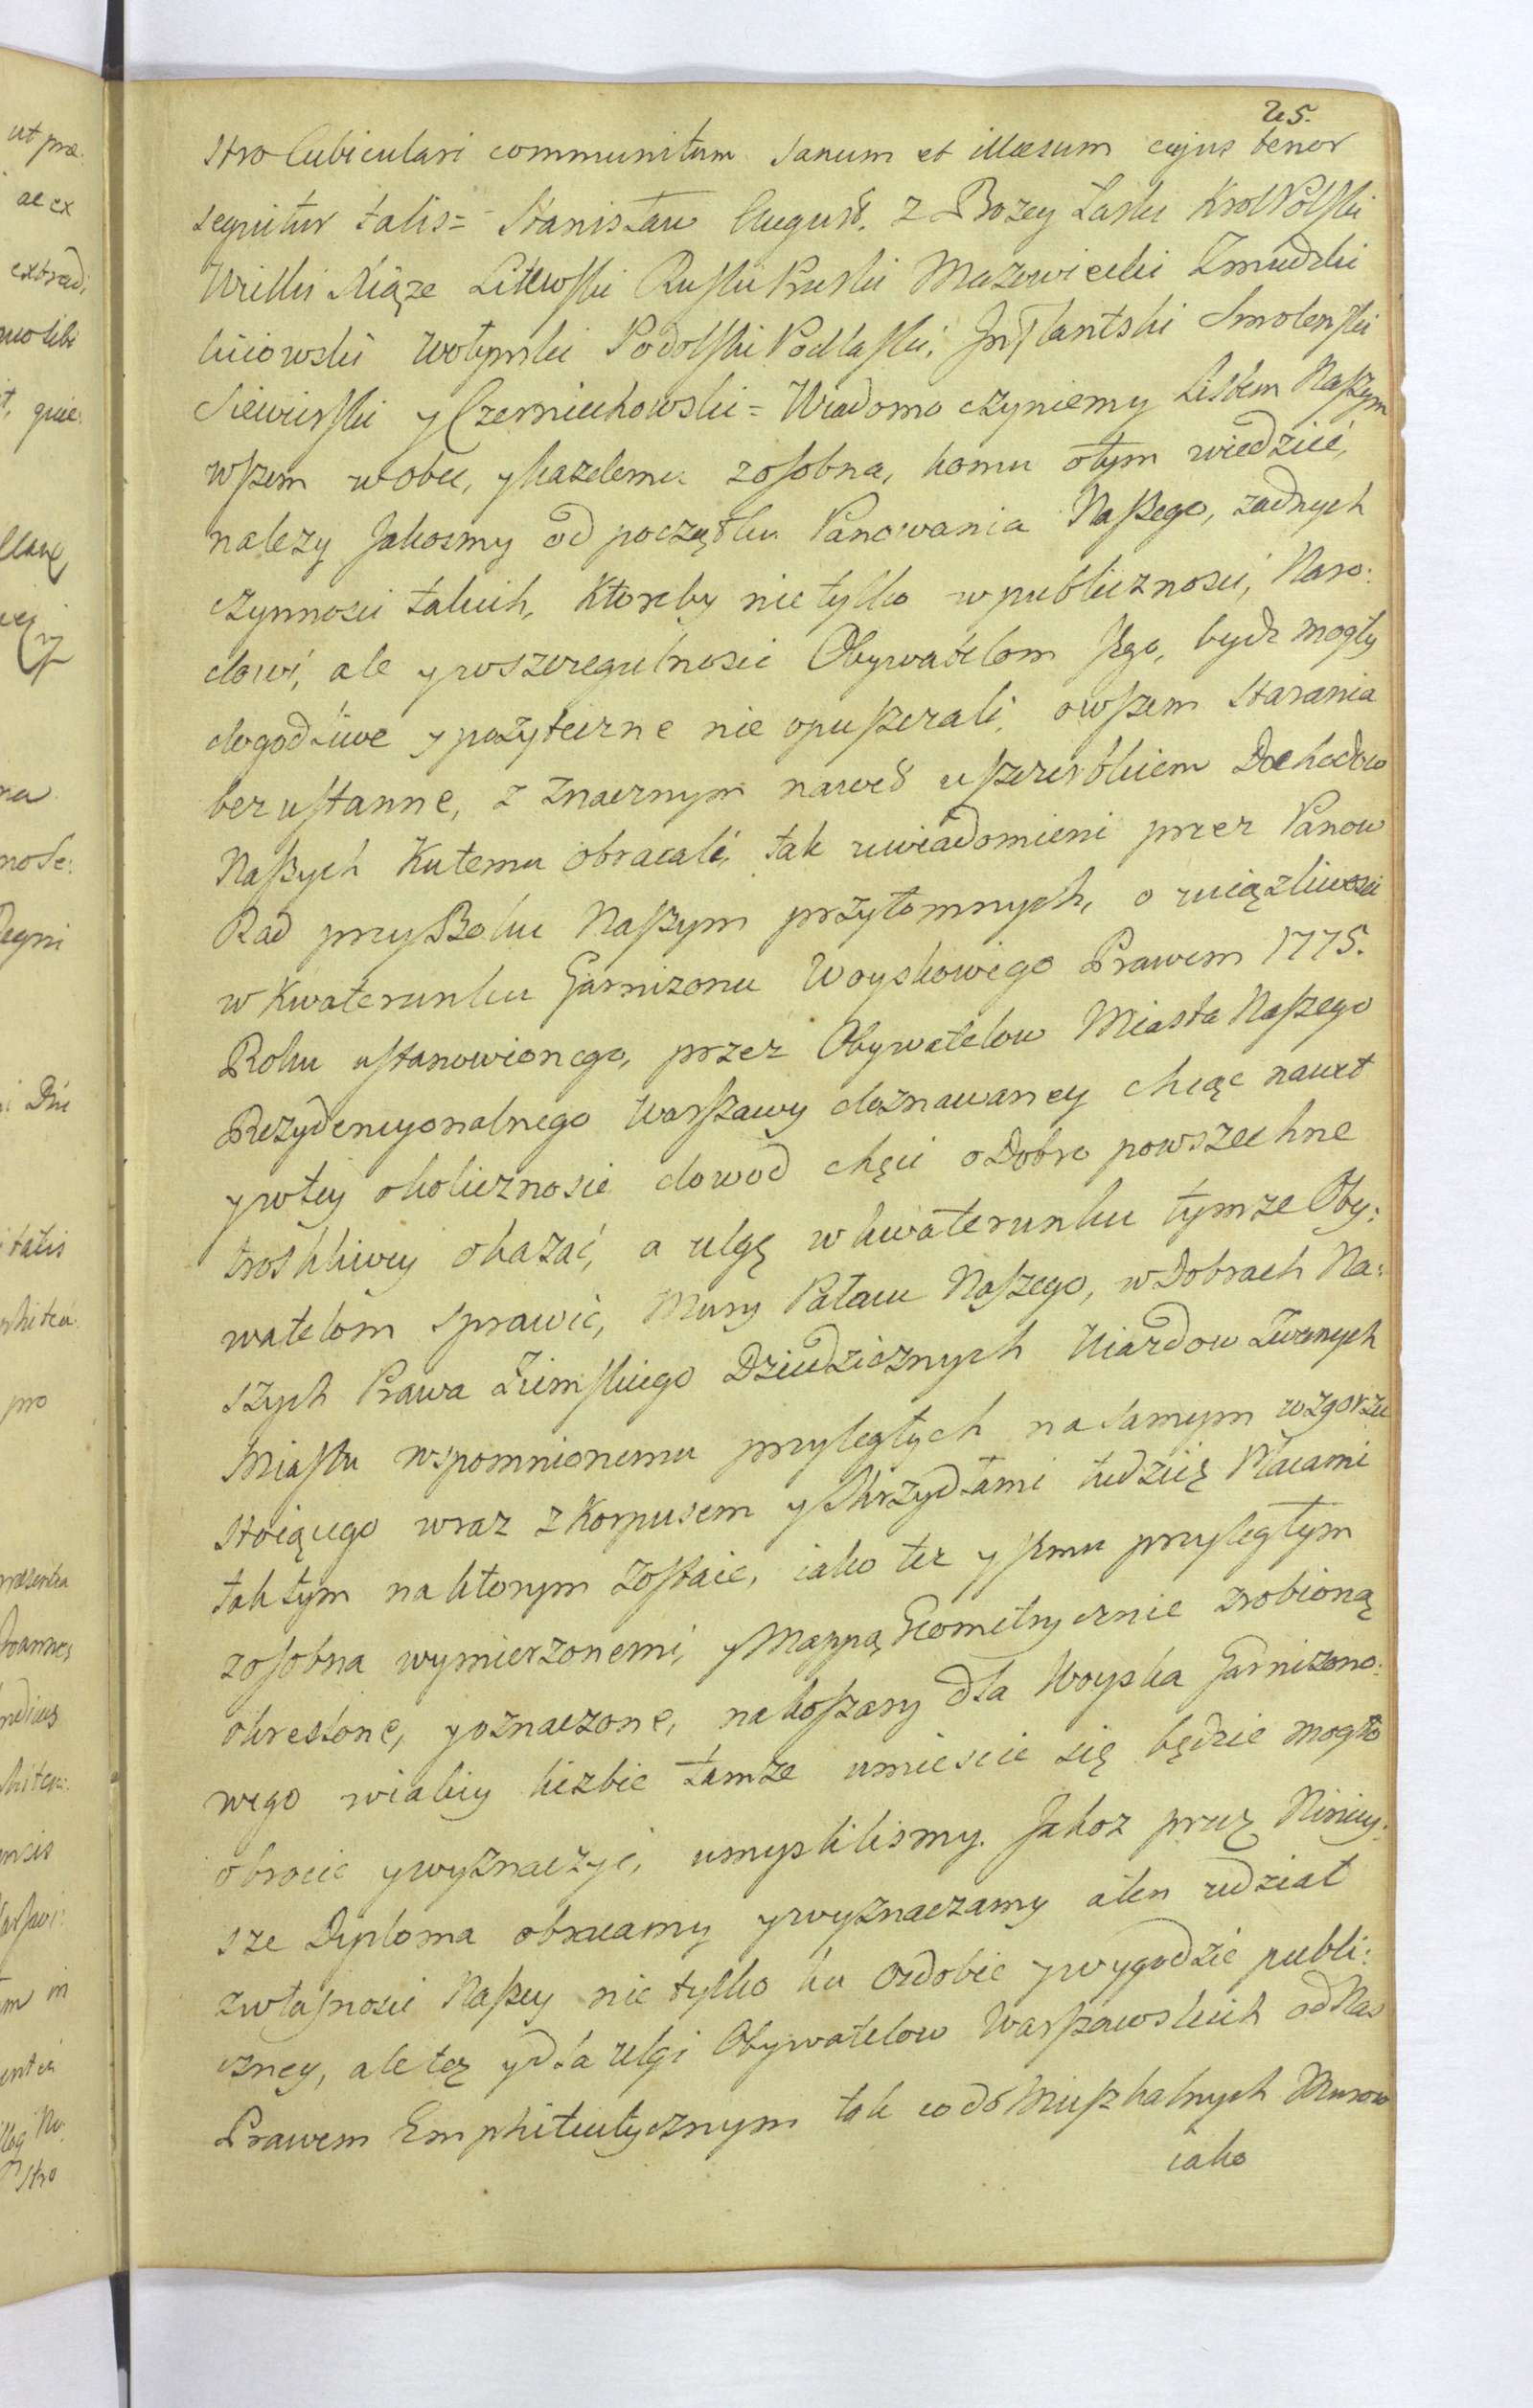 25.
stro Cubiculari communitum sanum et illæsum cujus tenor
sequitur talis = Stanisław August. z Bozey Łaski Krol Polski
Wielki Xiąze Litewski Ruski Pruski Mazowiecki Zmudzki
kiiowski Wołynski Podolski Podlaski, Inflantski Smolenski
Siewierski y Czerniechowski = Wiadomo czyniemy Listem Naszym
wszem wobec, y kazdemu zosobna, komu otym wiedzieć,
nalezy Jakosmy od początku Panowania Naszego, zadnych
czynnosci takich, ktoreby nie tylko w publicznosci, Naro:
dowi, ale y wszczegulnosci Obywatelom Jego, bydz mogły
dogodliwe y pozyteczne nie opuszczali, owszem starania
bez ustanne, z Znacznym nawet uszczerbkiem Dochodow
Naszych Kutemu obracali, tak uwiadomieni przez Panow
Rad przy Boku Naszym przytomnych, o uciązliwosci
w Kwaterunku Garnizonu Woyskowego Prawem 1775.
Roku ustanowionego, przez Obywatelow Miasta Naszego
Rezydencyonalnego Warszawy doznawaney chcąc nawet
y wtey okolicznosci dowod chęci o Dobro powszechne
troskliwey okazać, a ulgę w kwaterunku tymze Oby:
watelom sprawić, Mury Pałacu Naszego, w Dobrach Na:
szych Prawa Ziemskiego Dziedzicznych Uiazdow Zwanych
Miastu wspomnionemu przyległych na samym wzgorzu
stoiącego wraz z Korpusem y Skrzydłami tudzież Placami
tak tym na ktorym zostaie, iako tez y Jemu przyległym
zosobna wymierzonemi, y Mappą Geometrycznie zrobioną
okreslone, y oznaczone, na koszary dla Woyska Garnizono:
wego wiakiey liczbie tamze umiescic się będzie mogło
obrocic y wyznaczyć, umyslilismy. Jakoz przez Niniey:
sze Dyploma obracamy y wyznaczamy a ten udział
zwłasnosci Naszey nie tylko ku ozdobie y wygodzie publi:
czney, ale też y dla Ulgi Obywatelow Warszawskich od Nas
Prawem Emphiteutycznym tak co do Mieszkalnych Murow
iako